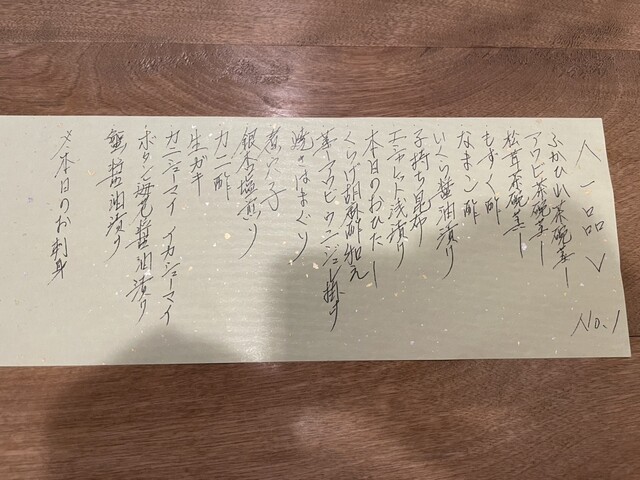 〈一品〉 No.1
ふかひれ茶碗蒸し
アワビ茶碗蒸し
松茸茶碗蒸し
もずく酢
なまこ酢
いくら醤油漬り
子持ち昆布
エシャレット浅漬り
本日のおひたし
くらげ胡麻酢和え
蒸しアワビ ウニジュレ掛け
焼きはまぐり
煮穴子
銀杏塩煎り
カニ酢
生ガキ
カニシューマイ イカシューマイ
ボタン海老醤油漬り
蟹醤油漬り
〆本日のお刺身